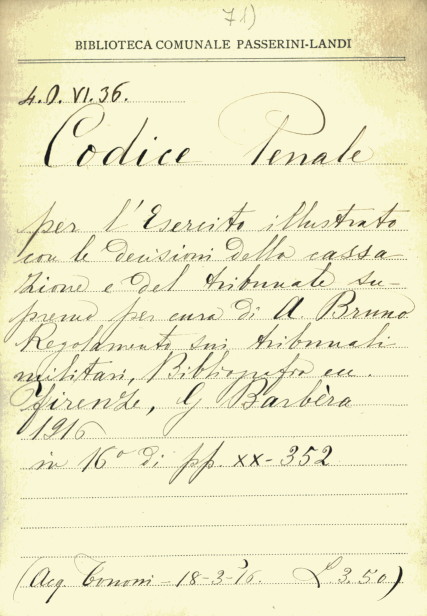 71)
BIBLIOTECA COMUNALE PASSERINI-LANDI
4.O.VI.36.
Codice Penale
per l'Esercito illustrato
con le decisioni della cassa
zione e del tribunale su-
premo per cura di A. Bruno
Regolamento sui tribunali
militari, Bibliografia ecc.
Firenze, G Barbèra
1916
in 16° di pp. xx-352
(Acq. Bononi - 18-3-16. L. 3.50)